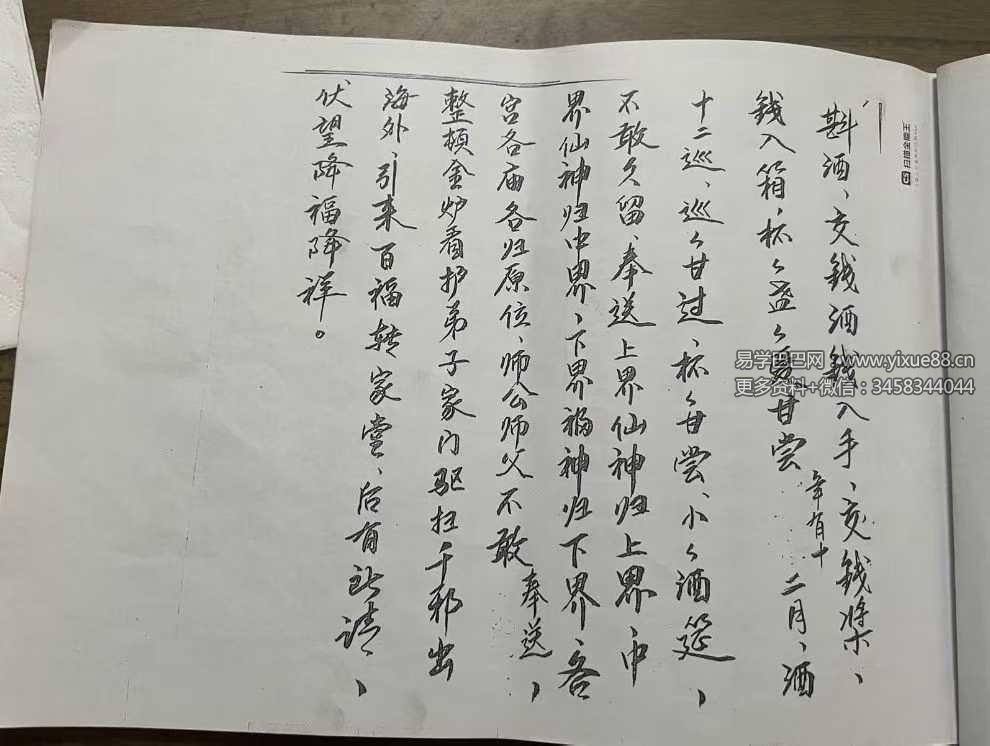 斟酒、交钱酒钱入手、交钱桨、
钱入箱,杯々盏々是甘尝年有十二月、酒
十二巡、巡々甘过、杯々甘尝、小々酒筵、
不敢久留、奉送上界仙神归上界、中
界仙神归中界、下界福神归下界、各
宫各庙各归原位、师公师父不敢奉送、
整顿金炉看护弟子家门驱扫千邪出
海外、引来百福转家堂、后有所请、
伏望降福降祥。
易学巴巴网:www.yixue88.cn
更多资料+微信:3458344044